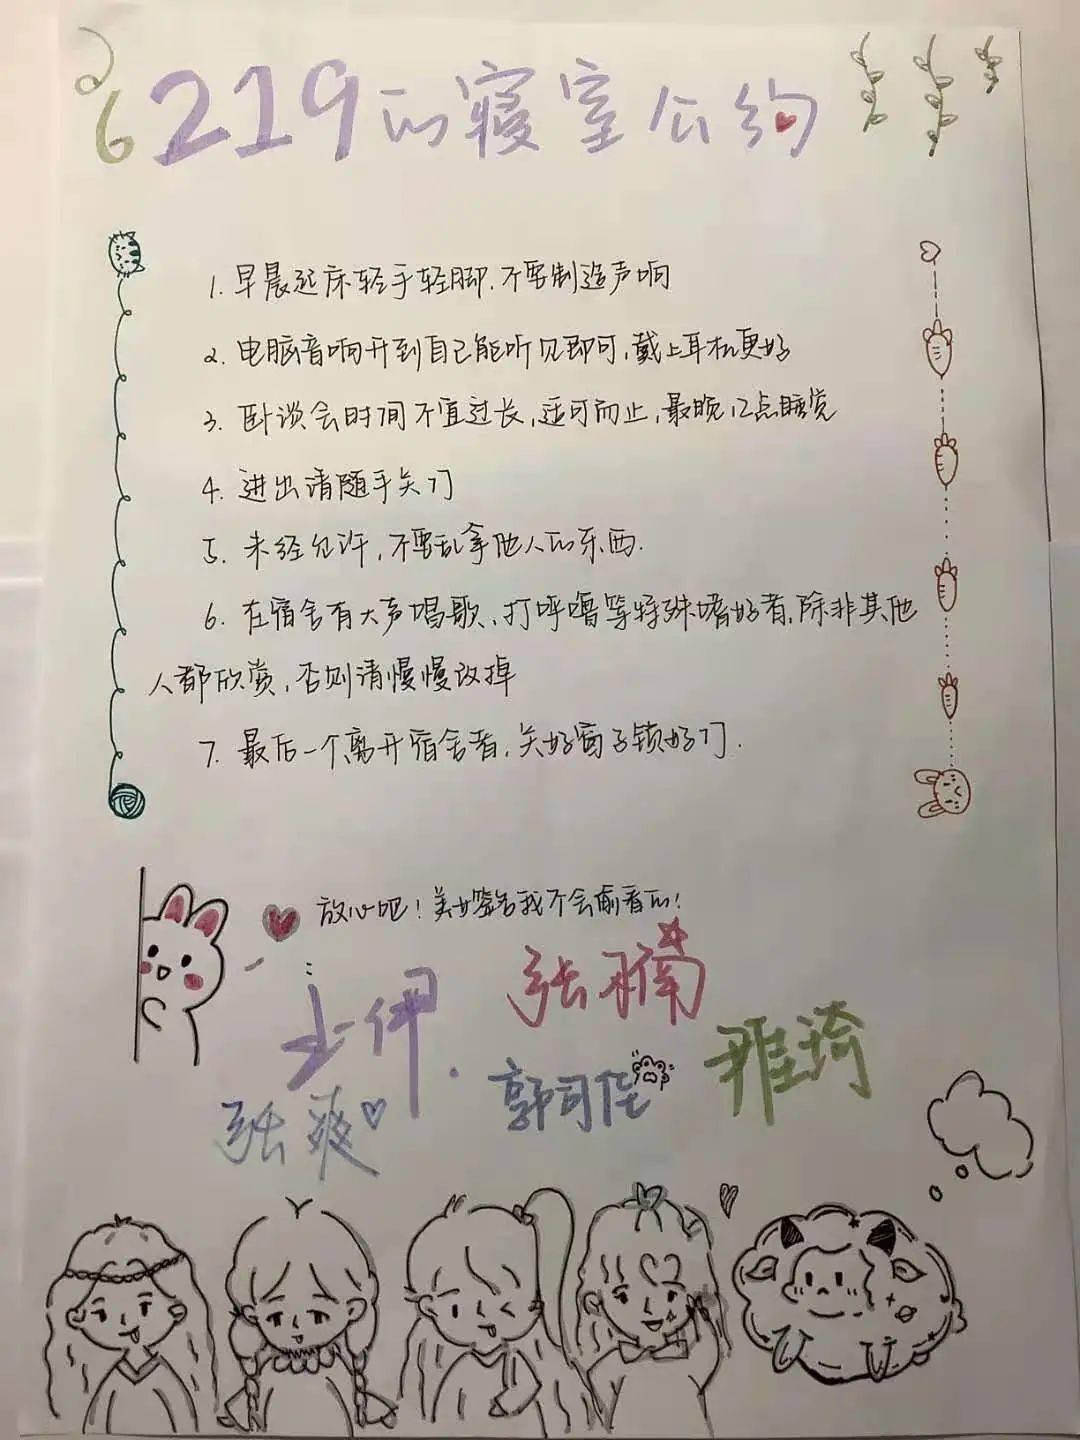 6219的寝室公约
1. 早晨起床轻手轻脚.不要制造声响
2. 电脑音响开到自己能听见即可,戴上耳机更好
3. 卧谈会时间不宜过长,适可而止,最晚12点睡觉
4. 进出请随手关门
5. 未经允许,不要乱拿他人的东西.
6. 在宿舍有大声唱歌、打呼噜等特殊嗜好者,除非其他
人都欣赏,否则请慢慢改掉
7. 最后一个离开宿舍者,关好窗子锁好门.
放心吧!美女签名我不会偷看的!
张
郭司佳
雅琦
张爽